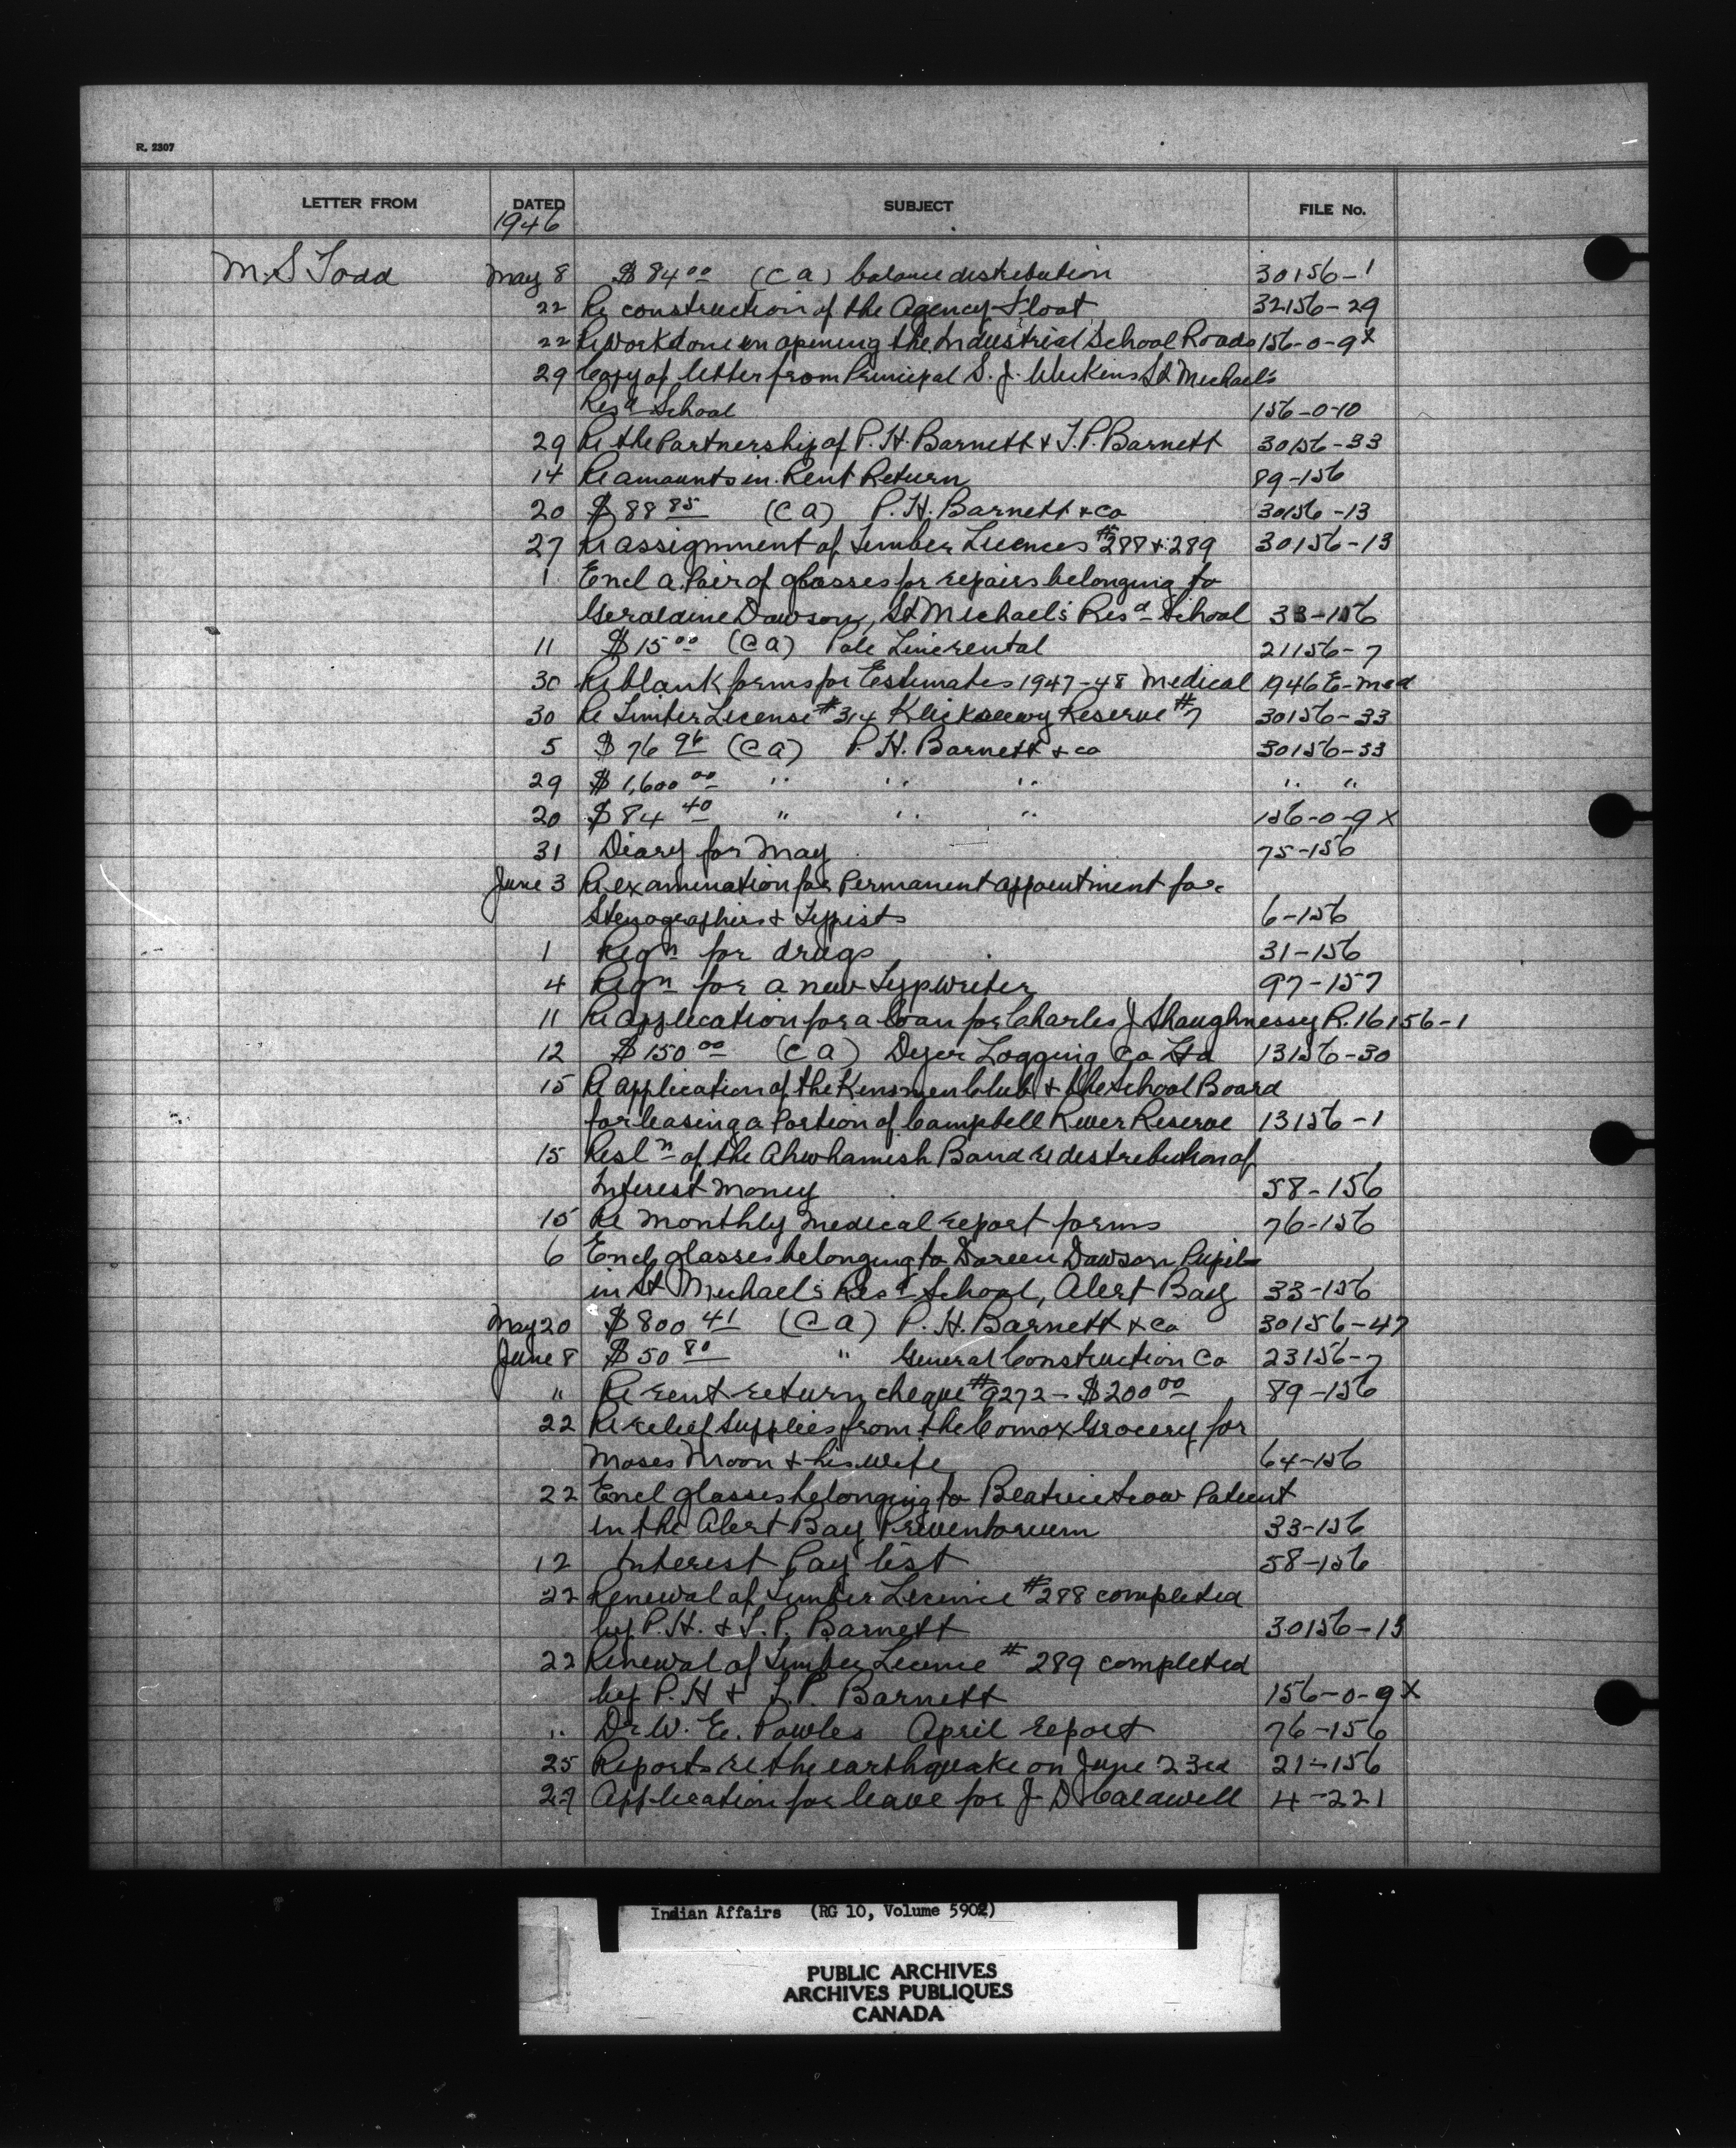 R. 2307
LETTER FROM DATED SUBJECT FILE No.
1946
M. S Todd May 8 $84.00 (C a) balance distribution 30156-1
22 Re construction of the Agency Float 32156-29
22 Re work done on opening the Industrial School Roads 156-0-9x
29 Copy of letter from Principal S. J. Wickens St Michael's
Resd School 156-0-10
29 Re the Partnership of P. H. Barnett & T. P. Barnett 30156-33
14 Re amounts in Rent Return 89-156
20 $88 85 (C a) P. H. Barnett & Co 30156-13
27 Re assignment of Timber Licences #288 & 289 30156-13
1 Encl a Pair of glasses for repairs belonging to
Geraldine Dawson, St Michael's Resd School 33-156
11 $15 00 (C a) Pole Line rental 21156-7
30 Re blank forms for Estimates 1947-48 Medical 1946 E-Med
30 Re Timber License #314 Klickseewy Reserve #7 30156-33
5 $76 96 (C a) P. H. Barnett & Co 30156-33
29 $1,600 00 " " " " "
20 $84 40 " " " 156-0-9x
31 Diary for May 75-156
June 3 Re examination for Permanent appointment for
Stenographers & Typists 6-156
1 Reqn for drugs 31-156
4 Reqn for a new Typwriter 97-157
11 Re application for a loan for Charles J Shaughnessy R. 16156-1
12 $150 00 (C a) Dyer Logging Co Ltd 13156-30
15 Re application of the Kinsmen Club & the School Board
for leasing a Portion of Campbell River Reserve 13156-1
15 Resln of the Ahwhamish Band re distribution of
Interest Money 58-156
15 Re Monthly Medical report forms 76-156
6 Encl glasses belonging to Doreen Dawson Pupil
in St Michael's Resd School, Alert Bay 33-156
May 20 $800 41 (C a) P. H. Barnett & Co 30156-47
June 8 $50 80 " General Construction Co 23156-7
" Re rent return cheque #9272 - $200 00 89-156
22 Re relief supplies from the Comox Grocery for
Moses Moon & his wife 64-156
22 Encl glasses belonging to Beatrice Patient
in the Alert Bay Preventorium 33-156
12 Interest Pay list 58-156
22 Renewal of Timber Licence #288 completed
by P. H. & T. P. Barnett 30156-13
22 Renewal of Timber Licence #289 completed
by P. H & T. P. Barnett 156-0-9x
" Dr W. E. Powles April report 76-156
25 Reports re the earthquake on June 23rd 21-156
27 Application for leave for J D Caldwell 4-221
Indian Affairs (RG 10, Volume 5902)
PUBLIC ARCHIVES
ARCHIVES PUBLIQUES
CANADA